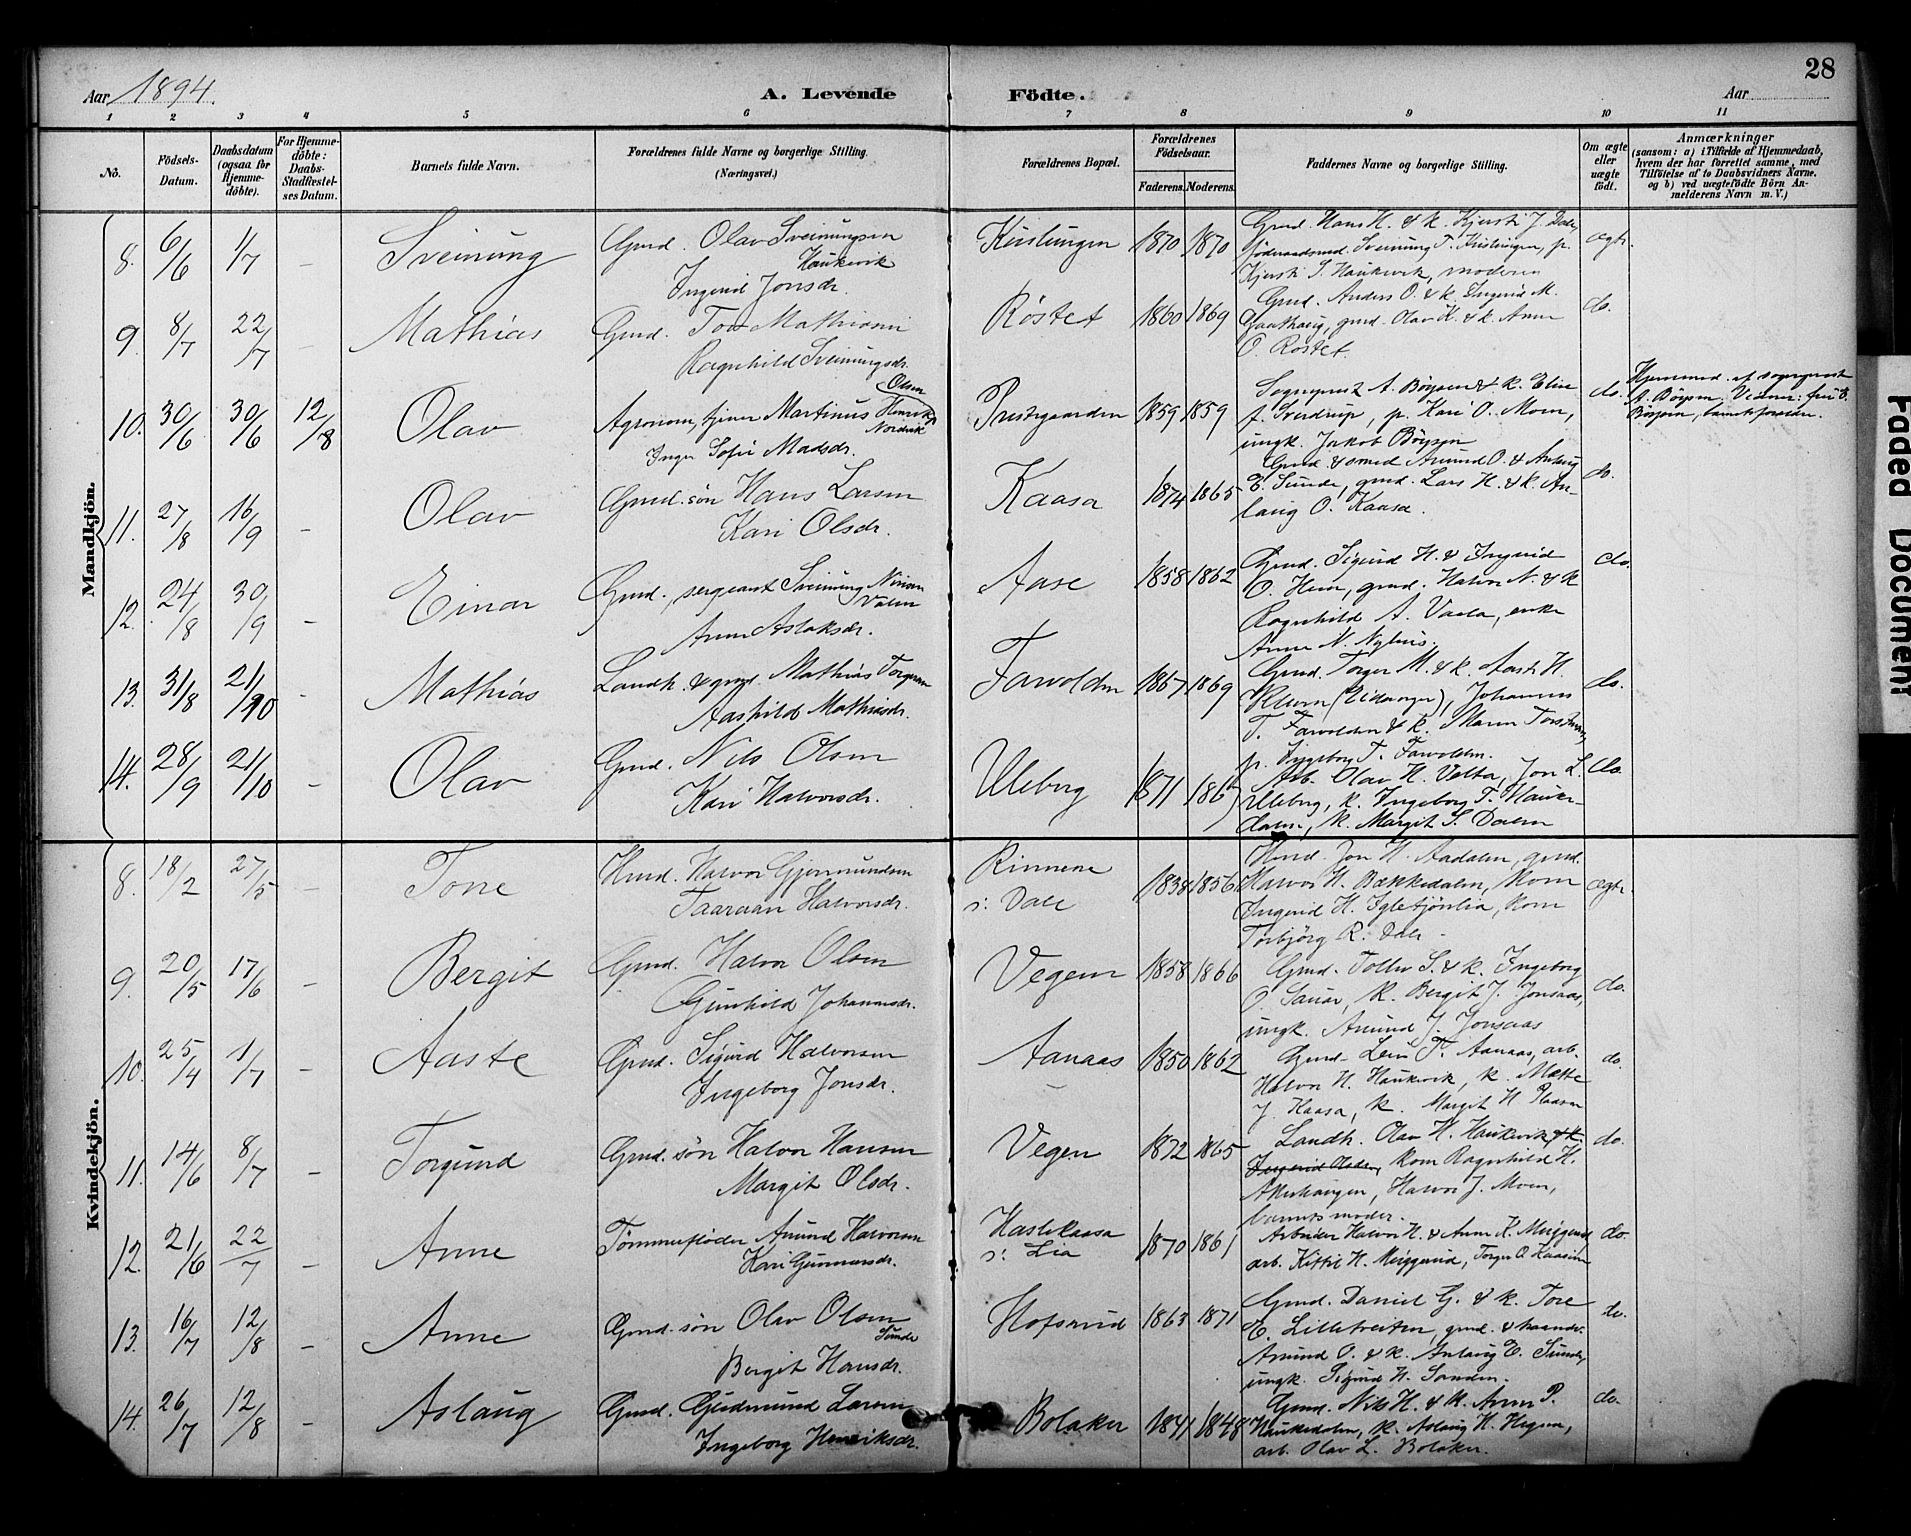 28
Aar 1894. A. Levende Födte. Aar
1 2 3 4 5 6 7 8 9 10 11
No.
Födsels-Datum.
Daabsdatum (ogsaa for Hjemme-döbte).
For Hjemme-döbte: Daabs-Stadfestel-ses Datum.
Barnets fulde Navn.
Forældrenes fulde Navne og borgerlige Stilling.
(Næringsvei.)
Forældrenes Bopæl.
Forældrenes Födselsaar.
Faderens. Moderens.
Faddernes Navne og borgerlige Stilling.
Om ægte eller uægte födt.
Anmærkninger
(saasom: a) i Tilfælde af Hjemmedaab,
hvem der har forrettet samme, med
Tilföielse af to Daabsvidners Navne.
og b) ved uægtefödte Börn An-
melderens Navn m. V.)
Mandkjön.
8. 6/6 1/7 - Sveinung Gmd. Olav Sveinungsen Haukvik
Ingerid Jonsdr. 1870 1870 Gmd. Hans H. & k. Kjersti J. Dale,
Kjersti S. Haukvik, moderen ægte.
9. 8/7 22/7 - Mathias Gmd. Tov Mathisen
Ragnhild Sveinungsdr. Röstet 1860 1869 Gmd. Anders O. & k. Ingerid M.
gmd. Olav K. & k. Anne
O. Röstet. do.
10. 30/6 30/6 12/8 Olav Agronom, Martinus Olsen
Inger Sofie Madsdr. Prestegaarden 1859 1859 Sogneprest A. Böysen & k. Elise
f. Sverdrup, p. Kari O. Moen,
ungk. Jakob Böysen do. Hjemmed. af sogneprest
A. Böysen. Vidner: fru E.
Böysen, barnets forældre.
11. 27/8 16/9 - Olav Gmd. sön Hans Larsen
Kari Olsdr. Kaasa 1874 1865 Gmd. & smed Amund O. & Anlaug
E. Sunde, gmd. Lars H. & k. An-
laug O. Kaasa. do.
12. 24/8 30/9 - Einar Gmd., sergeant Sveinung
Anne Aslaksdr. Aase 1858 1862 Gmd. Sigurd H. & Ingerid
O. Heim, gmd. Halvor N. & k.
Ragnhild A. Vaala, enke
Anne N. Nyhus. do.
13. 31/8 21/10 Mathias Landh. & gmd. Mathias Torgersen
Aashild Mathisdr. Farvolden 1867 1869 Gmd. Torger M. & k. Aaste H.
(Eidanger), Johannes
T. Farvolden & k. Maren Torstensen,
p. Ingeborg T. Farvolden. do.
14. 28/9 21/10 - Olav Gmd. Nils Olsen
Kari Halvorsdr. Uleberg 1871 1867 Arb. Olav H. Velta, Jon L.
Uleberg, k. Ingeborg T. Hauke-
dalen, k. Margit S. Dalen do.
Kvindekjön.
8. 18/2 27/5 - Tone Hmd. Halvor Gjermundsen
Taaraan Halvorsdr. Rinnene
i: Dale 1838 1856 Hmd. Jon H. Aadalen, gmd.
Halvor H. Bækkedalen, kone
Ingerid H. Igletjönlia, kone
Torbjörg R. Dale - ægte
9. 20/5 17/6 - Bergit Gmd. Halvor Olsen
Gunhild Johannesdr. Vegen 1858 1866 Gmd. Tollev S. & k. Ingeborg
O. Sauar, k. Bergit J. Jonsaas,
ungk. Amund J. Jonsaas do.
10. 25/4 1/7 - Aaste Gmd. Sigurd Halvorsen
Ingeborg Jonsdr. Aanaas 1850 1862 Gmd. Leiv T. Aanaas, arb.
Halvor H. Haukvik, k. Mætte
J. Kaasa, k. Margit H. Kaasa do.
11. 14/6 8/7 - Torgund Gmd. sön Halvor Hansen
Margit Olsdr. Vegen 1872 1865 Landh. Olav H. Haukvik & k.
Ingerid Olsdr., kone Ragnhild H.
Akerhaugen, Halvor J. Moen,
barnets moder. do.
12. 21/6 22/7 - Anne Tömmerfloder Amund Halvorsen
Kari Gunnarsdr. Haslekaasa
i: Lia 1870 1861 Arbeider Halvor H. & Anne K. Meiggerud,
arb. Kittil H. Meiggerud, Torger O. Kaasene do.
13. 16/7 12/8 - Anne Gmd. sön Olav Olsen Sunde
Bergit Hansdr. Hofsrud 1863 1871 Gmd. Daniel G. & k. Tone
E. Lilletveiten, gmd. & haandv.
Amund O. & k. Anlaug E. Sunde,
ungk. Sigurd H. Sanden. do.
14. 26/7 12/8 - Aslaug Gmd. Gudmund Larsen
Ingeborg Henriksdr. Bolaker 1841 1848 Gmd. Nils H. & k. Anne P.
Haukedalen, k. Aslaug H. Hegna,
arb. Olav L. Bolaker. do.
Faded Document